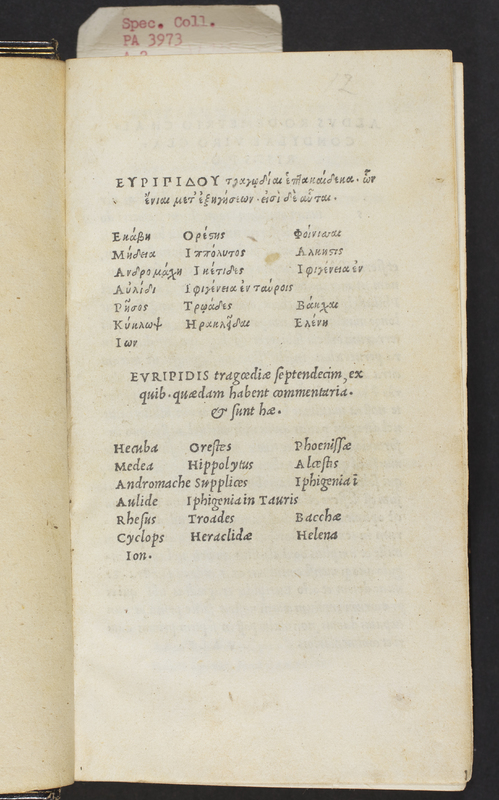 Spec. Coll.
PA 3973
2
ΕΥΡΙΠΙΔΟΥ τραγῳδίαι ἑπτακαίδεκα. ὧν
ἔνιαι μετ ἐξηγήσεων. εἰσὶ δὲ αὗται.
Εκάβη Ορέστης Φοίνισσαι
Μήδεια Ιππόλυτος Αλκηστις
Ανδρομάχη Ικέτιδες Ιφιγένεια ἐν
Αὐλίδι Ιφιγένεια ἐν ταύροις
Ρῆσος Τρῳάδες Βάκχαι
Κύκλωψ Ηρακλεῖδαι Ελένη
Ιων
EVRIPIDIS tragœdiæ septendecim, ex
quib. quædam habent commentaria.
& sunt hæ.
Hecuba Orestes Phoenissæ
Medea Hippolytus Alcestis
Andromache Supplices Iphigenia ī
Aulide Iphigenia in Tauris
Rhesus Troades Bacchæ
Cyclops Heraclidæ Helena
Ion.